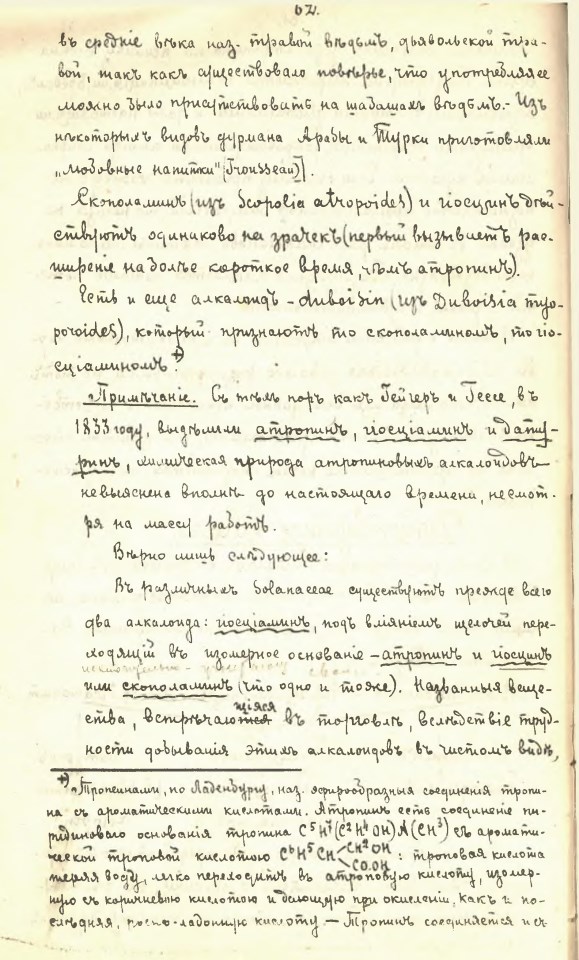 62.
въ средніе вѣка наз. травой вѣдьмъ, дьявольской тра-
вой, такъ какъ существовало повѣрье, что употребляя ее
можно было присутствовать на шабашахъ вѣдьмъ.- Изъ
нѣкоторыхъ видовъ дурмана Арабы и Турки приготовляли
„любовные напитки" (Trousseau)].
Скополаминъ (изъ Scopolia atropoides) и гіосцинъ дѣй-
ствуютъ одинаково на зрачекъ (первый вызываетъ рас-
ширеніе на болѣе короткое время, чѣмъ атропинъ).
Есть и еще алкалоидъ - duboisin (изъ Duboisia myo-
poroides), который признаютъ то скополаминомъ, то гіо-
сціаминомъ.+)
„Примѣчаніе. Съ тѣхъ поръ какъ Гейгеръ и Гессе, въ
1833 году, выдѣлили атропинъ, гіосціаминъ и дату-
ринъ, химическая природа атропиновыхъ алкалоидовъ
невыяснена вполнѣ до настоящаго времени, несмот-
ря на массу работъ.
Вѣрно лишь слѣдующее:
Въ различныхъ Solanaceae существуютъ прежде всего
два алкалоида: гіосціаминъ, подъ вліяніемъ щелочей пере-
ходящій въ изомерное основаніе - атропинъ и гіосцинъ
или скополаминъ (что одно и тоже). Названныя веще-
ства, встрѣчающіяся въ торговлѣ, вслѣдствіе труд-
ности добыванія этихъ алкалоидовъ въ чистомъ видѣ,
+) „Тропеинами, по Ладенбургу, наз. эфирообразныя соединенія тропи-
на съ ароматическими кислотами. Атропинъ есть соединеніе пи-
ридиноваго основанія тропина C⁵H⁷(C²H⁴OH)A(CH³) съ арома­ти-
ческой троповой кислотою C⁶H⁵CH<CH²OH CO.OH : троповая кислота
теряя воду, легко переходитъ въ атроповую кислоту, изомер-
ную съ коричневою кислотою и дающую при окисленіи, какъ и по-
слѣдняя, горько-ладонную кислоту. - Тропинъ соединяется и съ